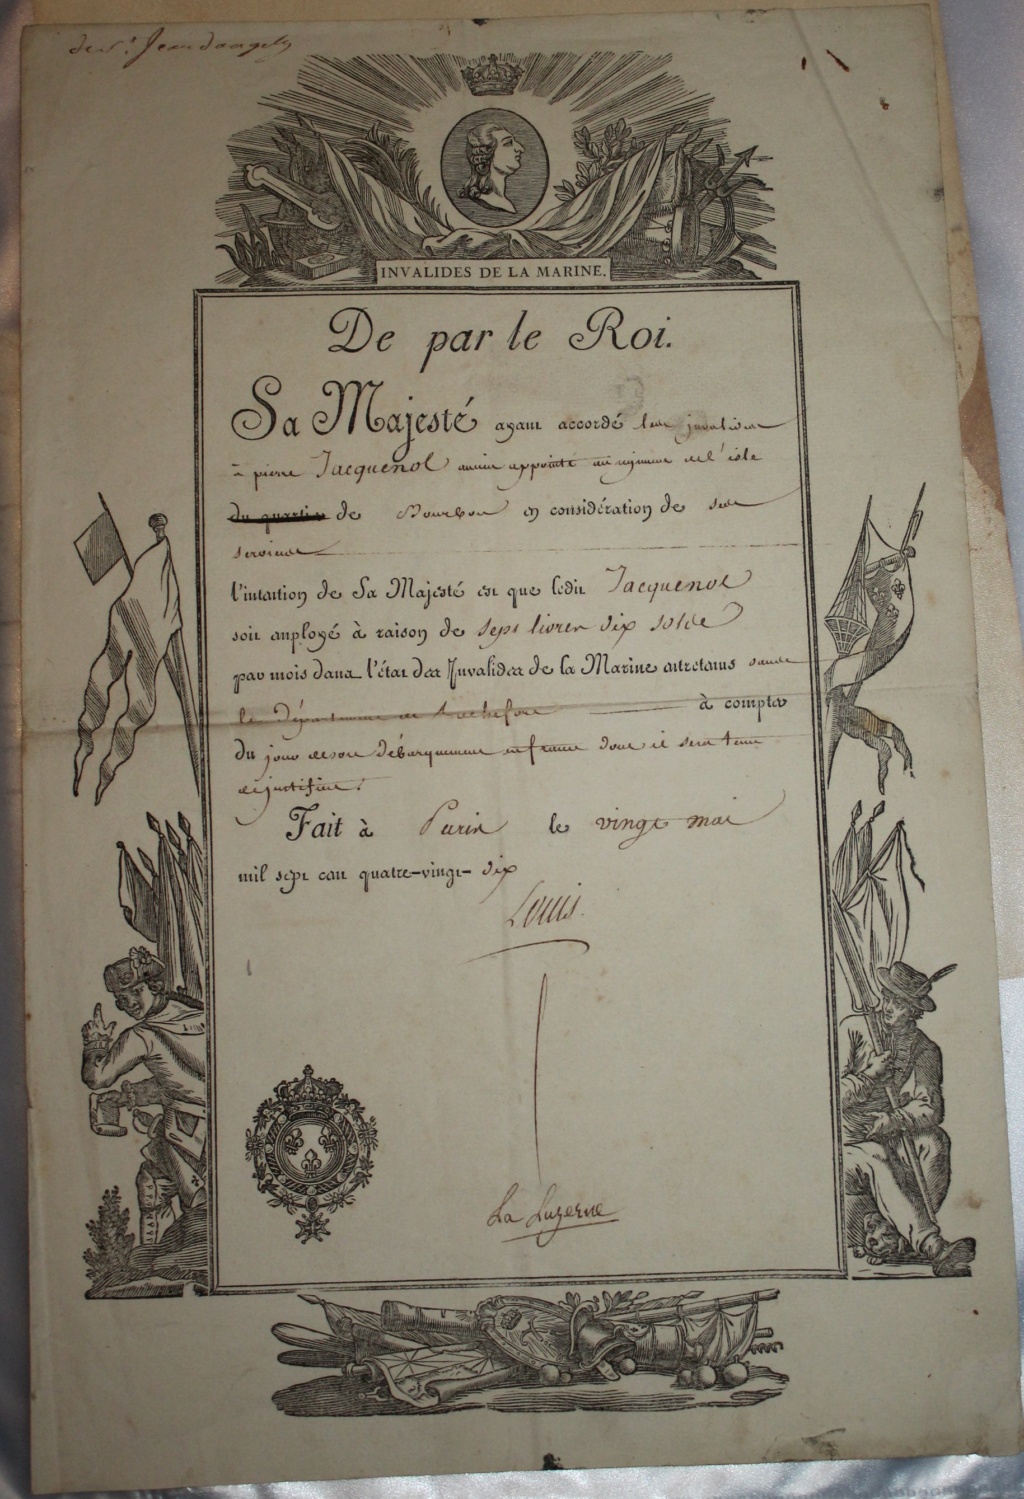 de St Jean dangely
INVALIDES DE LA MARINE.
De par le Roi.
Sa Majesté ayant accordé les invalides
à pierre Jacquenol ancien appointé au régiment de l'isle
du quartier de Bourbon en considération de ses
services
l'intention de Sa Majesté est que ledit Jacquenol
soit employé à raison de sept livres dix sols
par mois dans l'état des Invalides de la Marine entretenus dans
le département de Rochefort à compter
du jour de son débarquement en france dont il sera tenu
de justifier.
Fait à Paris le vingt mai
mil sept cent quatre-vingt-dix
Louis.
La Luzerne